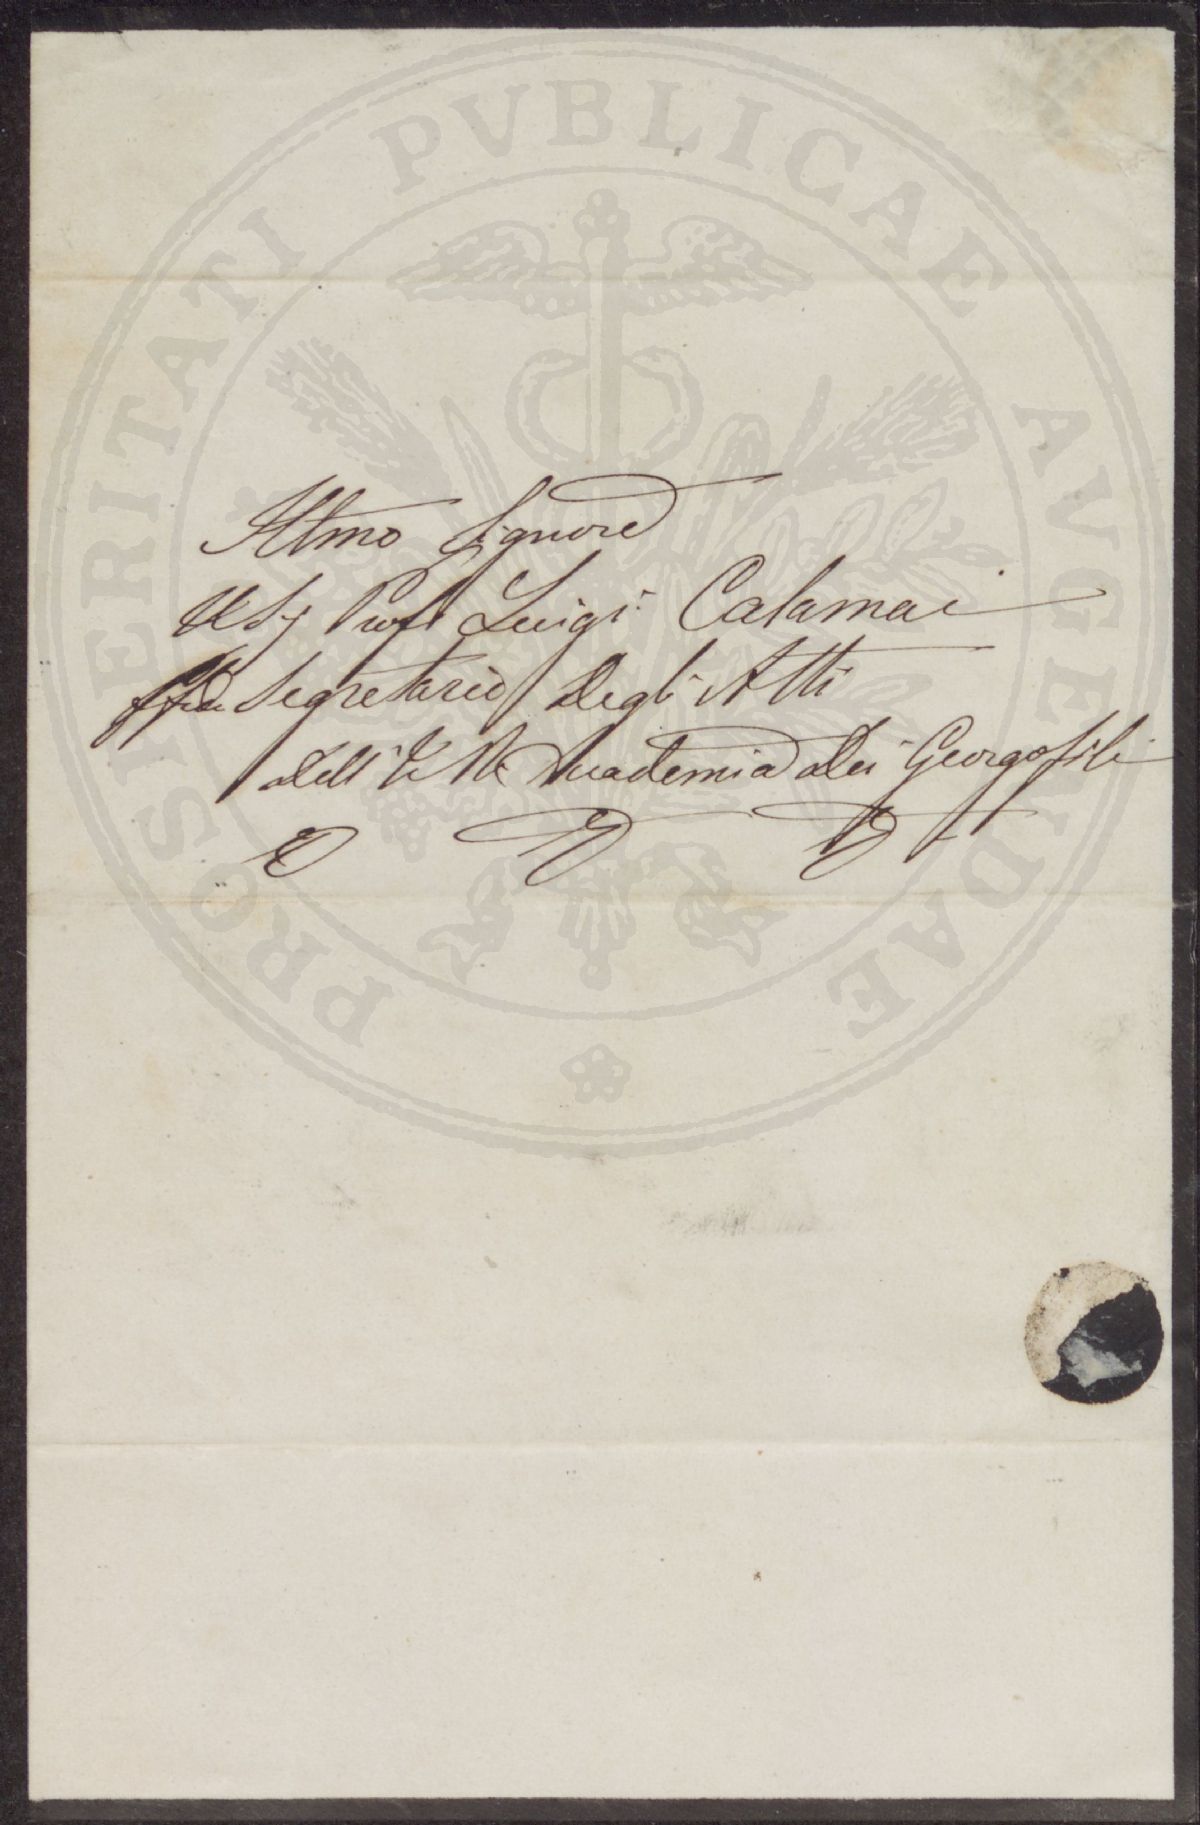 PROSPERITATI PVBLICAE AVGENDAE
Illmo Signore
Il Sig Prof Luigi Calamai
Segretario degli Atti
dell' I. e R. Accademia dei Georgofili